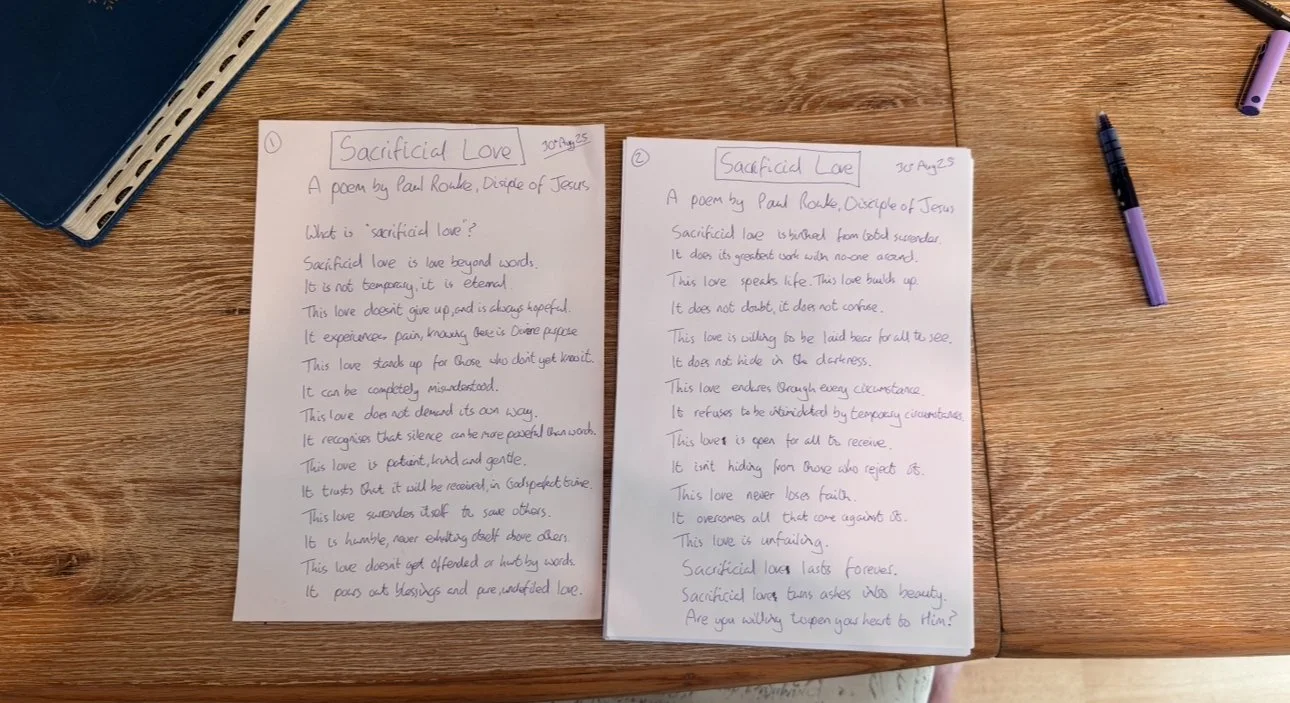 1
Sacrificial Love
30th Aug 25
A poem by Paul Rouke, Disiple of Jesus
What is "sacrificial love"?
Sacrificial love is love beyond words.
It is not temporary, it is eternal.
This love doesn't give up, and is always hopeful.
It experiences pain, knowing there is Divine purpose
This love stands up for those who don't yet know it.
It can be completely misunderstood.
This love does not demand its own way.
It recognises that silence can be more powerful than words.
This love is patient, kind and gentle.
It trusts that it will be received, in Gods perfect time.
This love surrenders itself to save others.
It is humble, never exhalting itself above others.
This love doesn't get offended or hurt by words.
It pours out blessings and pure, undefiled love.
2
Sacrificial Love
30th Aug 25
A poem by Paul Rouke, Disciple of Jesus
Sacrificial love is birthed from total surrender.
It does its greatest work with no-one around.
This love speaks life. This love builds up.
It does not doubt, it does not confuse.
This love is willing to be laid bear for all to see.
It does not hide in the darkness.
This love endures through every circumstance.
It refuses to be intimidated by temporary circumstances.
This love is open for all to receive.
It isn't hiding from those who reject it.
This love never loses faith.
It overcomes all that come against it.
This love is unfailing.
Sacrificial love lasts forever.
Sacrificial love turns ashes into beauty.
Are you willing to open your heart to Him?